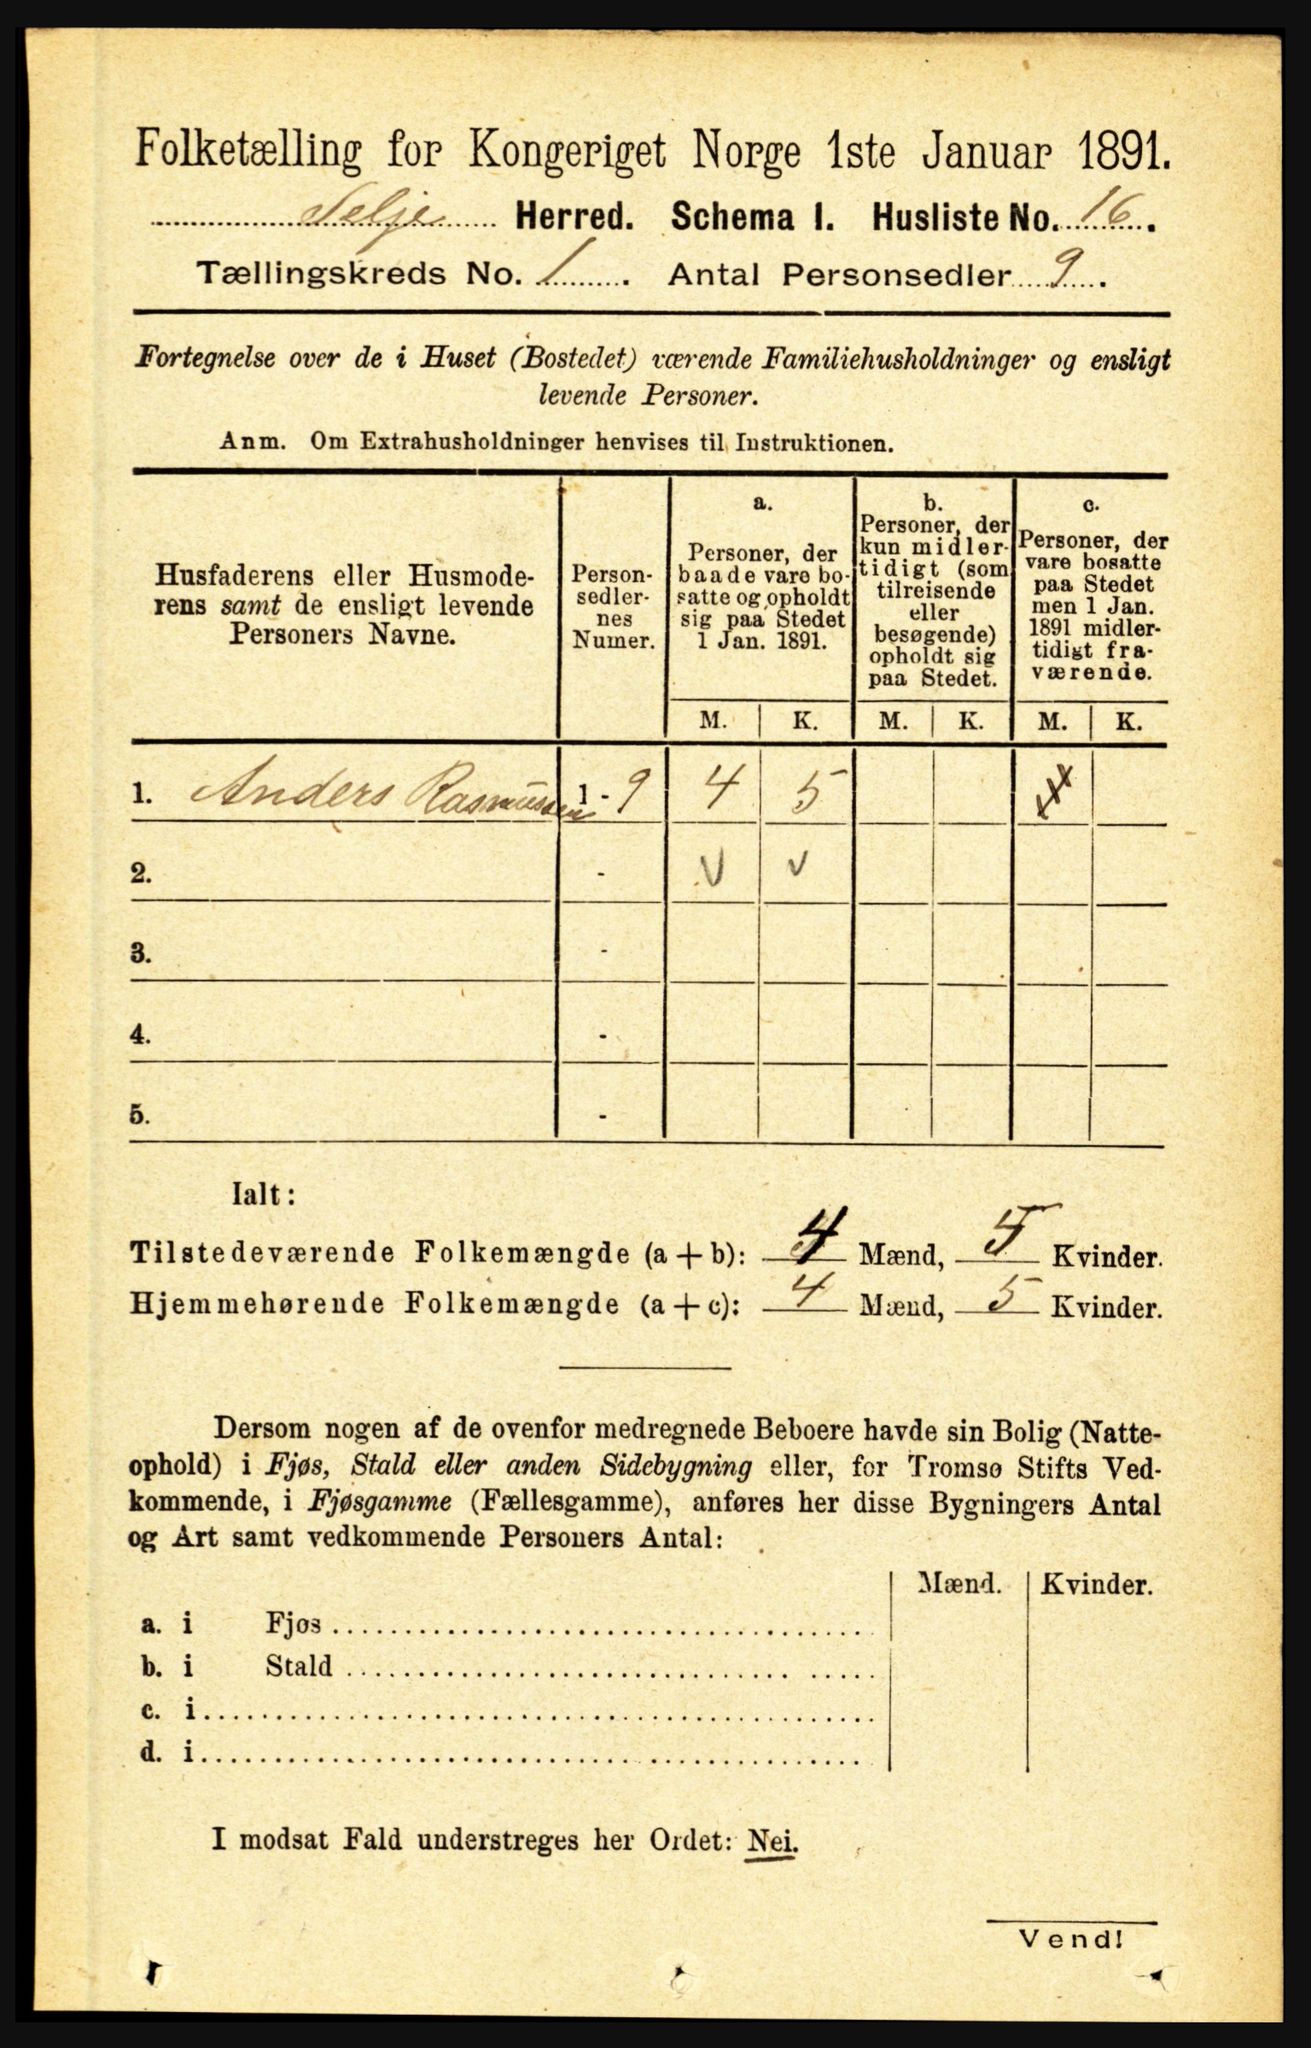 Folketælling for Kongeriget Norge 1ste Januar 1891.
Selje Herred. Schema I. Husliste No. 16.
Tællingskreds No. 1. Antal Personsedler 9.
Fortegnelse over de i Huset (Bostedet) værende Familiehusholdninger og ensligt
levende Personer.
Anm. Om Extrahusholdninger henvises til Instruktionen.
Husfaderens eller Husmode-
rens samt de ensligt levende
Personers Navne.
Person-
sedler-
nes
Numer.
a.
Personer, der
baade vare bo-
satte og opholdt
sig paa Stedet
1 Jan. 1891.
b.
Personer, der
kun midler-
tidigt (som
tilreisende
eller
besøgende)
opholdt sig
paa Stedet.
c.
Personer, der
vare bosatte
paa Stedet
men 1 Jan.
1891 midler-
tidigt fra-
værende.
M. K. M. K. M. K.
1. Anders Rasmussen 1 - 9 4 5
2. - v v
3. -
4. -
5. -
Ialt:
Tilstedeværende Folkemængde (a + b): 4 Mænd, 5 Kvinder.
Hjemmehørende Folkemængde (a + c): 4 Mænd, 5 Kvinder.
Dersom nogen af de ovenfor medregnede Beboere havde sin Bolig (Natte-
ophold) i Fjøs, Stald eller anden Sidebygning eller, for Tromsø Stifts Ved-
kommende, i Fjøsgamme (Fællesgamme), anføres her disse Bygningers Antal
og Art samt vedkommende Personers Antal:
Mænd. Kvinder.
a. i Fjøs
b. i Stald
c. i
d. i
I modsat Fald understreges her Ordet: Nei.
Vend!